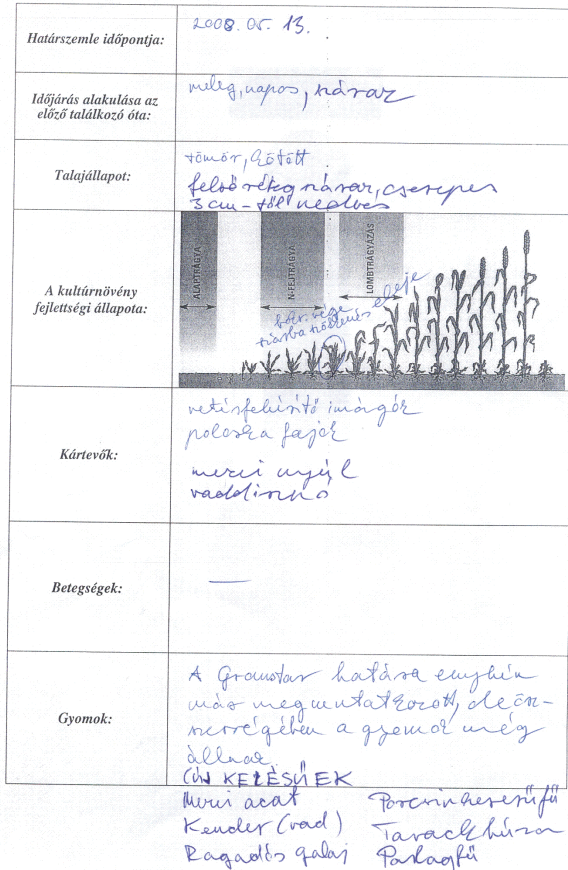 Határszemle időpontja:
2008. 05. 13.
Időjárás alakulása az
előző találkozó óta:
meleg, napos, száraz
Talajállapot:
tömör, kötött
felső réteg száraz, cserepes
3 cm-től nedves
A kultúrnövény
fejlettségi állapota:
ALAPTRÁGYA
N-FEJTRÁGYA
LOMBTRÁGYÁZÁS
bokr. vége
szárba szökkenés eleje
Kártevők:
vetésfehérítő imágók
poloska fajok
mezei nyúl
vaddisznó
Betegségek:
—
Gyomok:
A Granstar hatása enyhén
már megmutatkozott, de össz-
szességében a gyomok még
állnak.
KELÉSŰEK
Mezei acat Porcsinkeserűfű
Kender (vad) Tarackbúza
Ragadós galaj Parlagfű